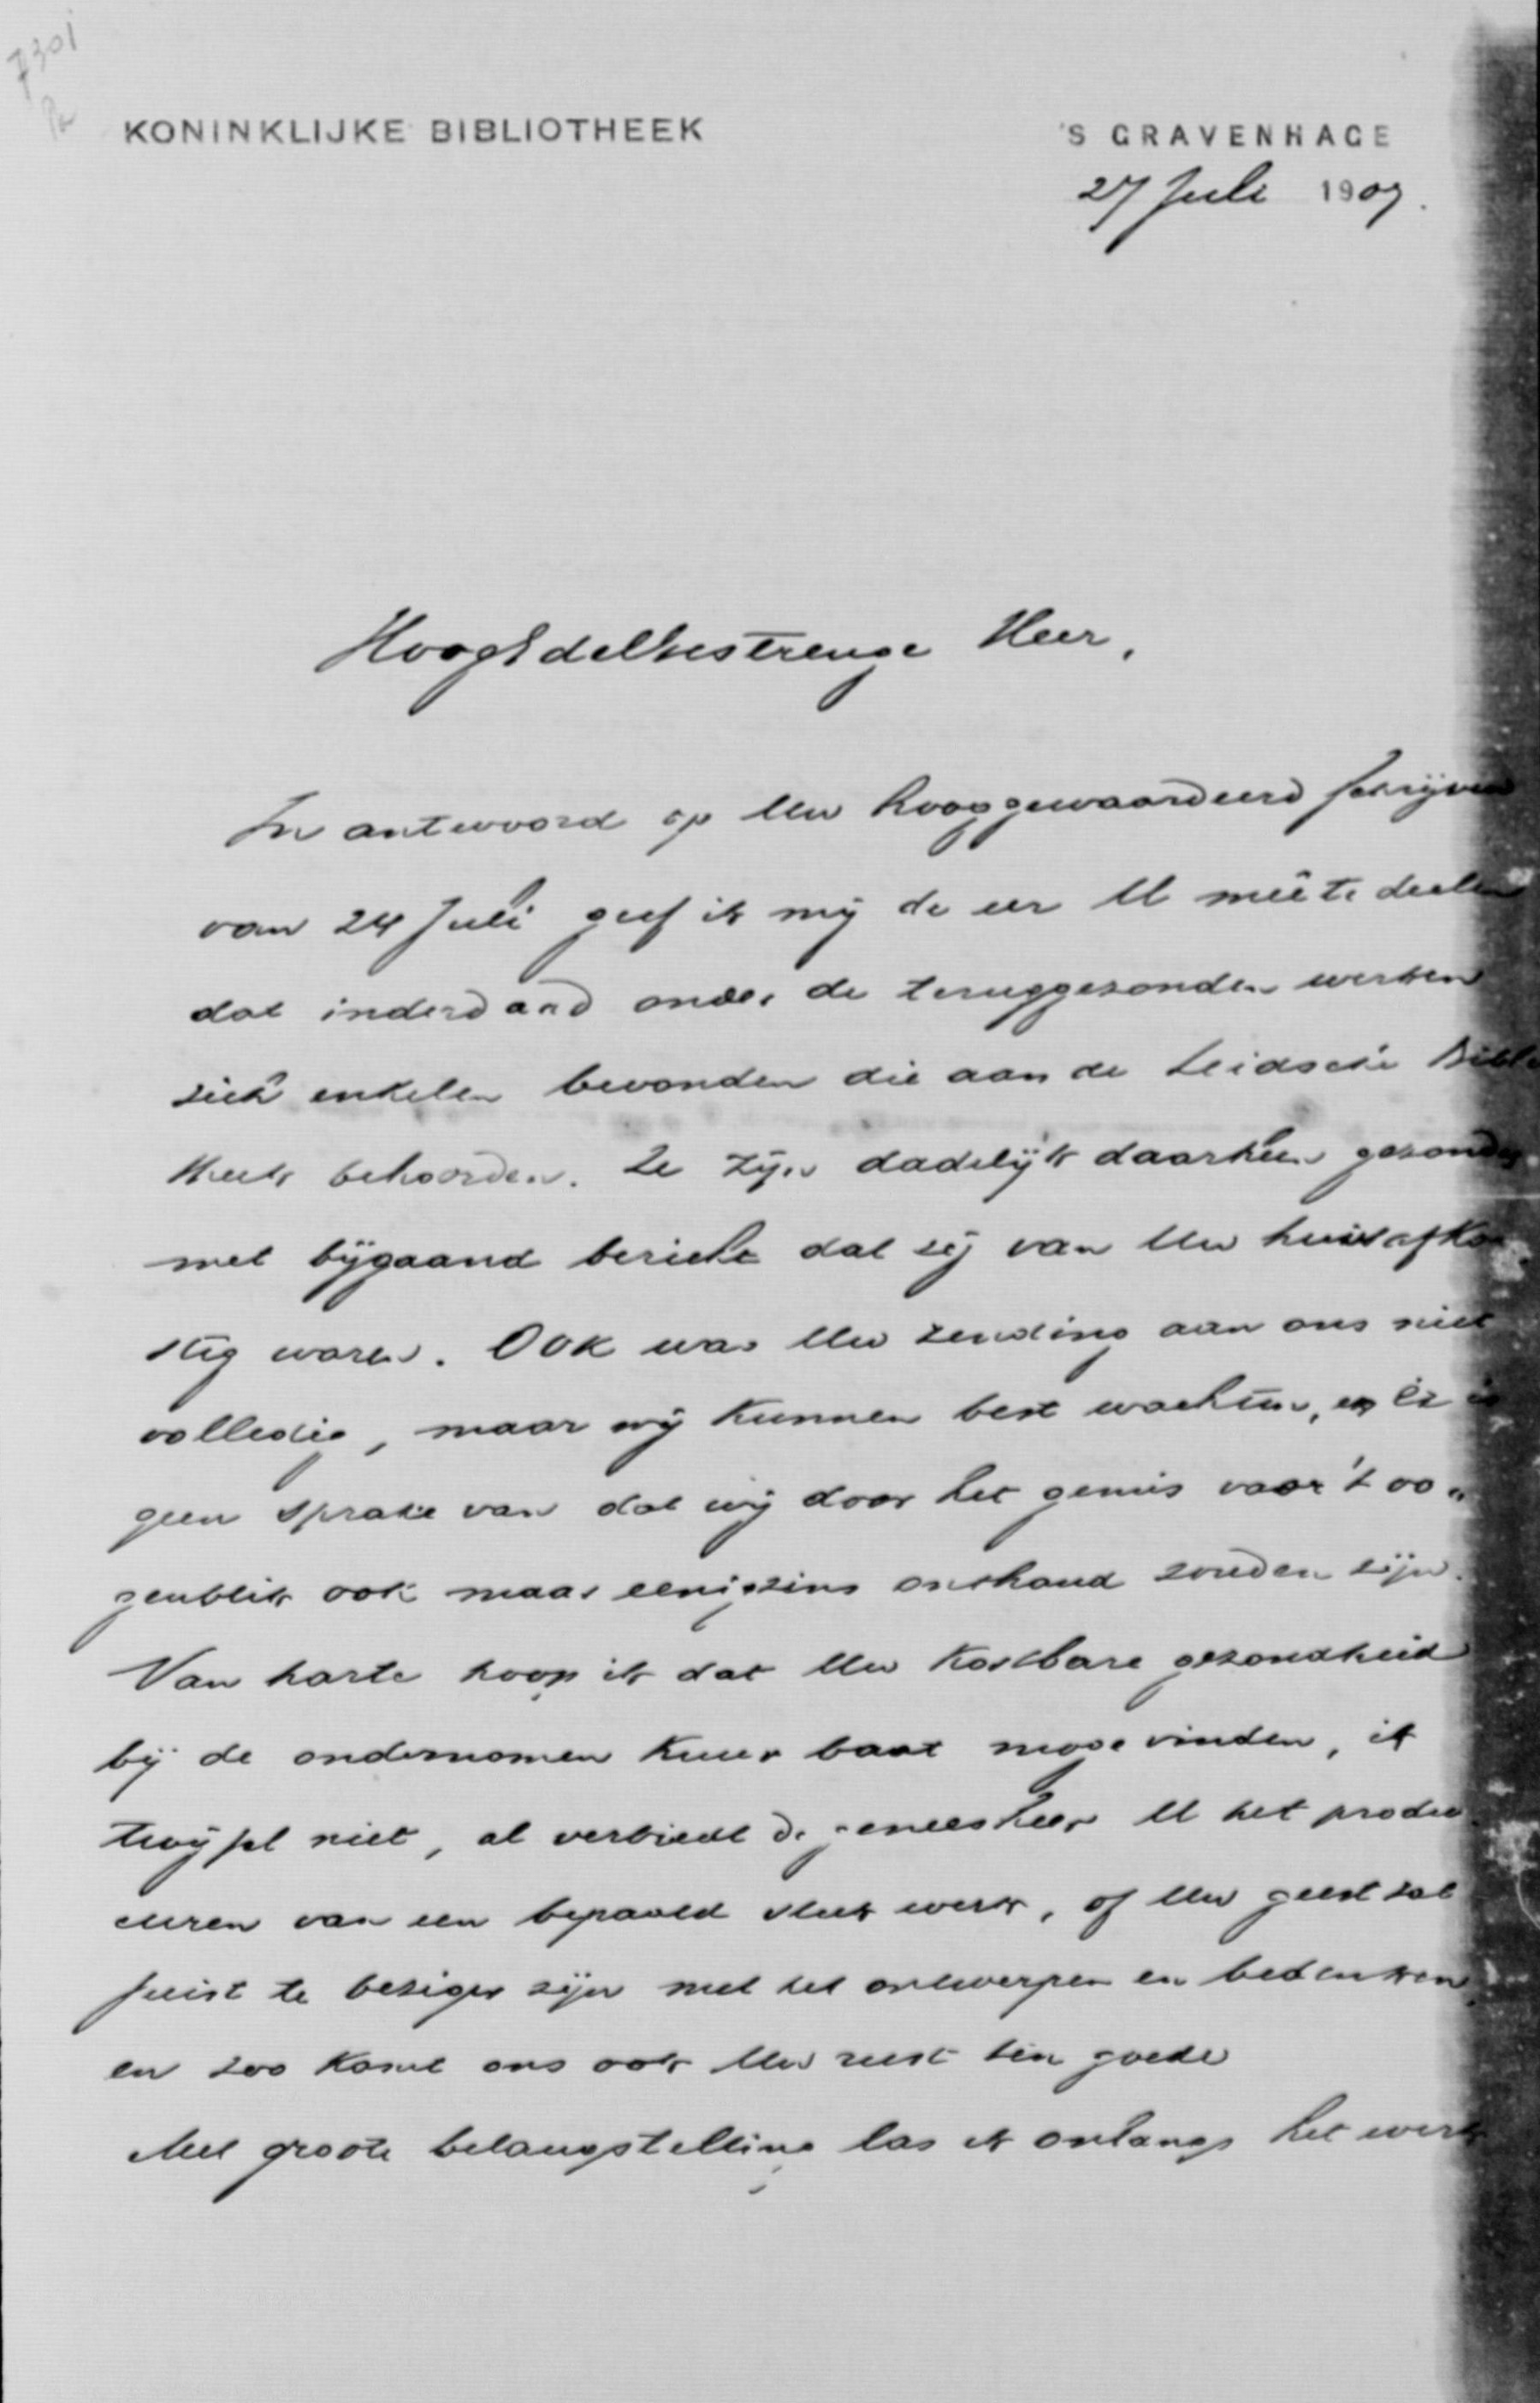 7301
KONINKLIJKE BIBLIOTHEEK
'S GRAVENHAGE
27 Juli 1907.
HoogEdelGestrenge Heer,
In antwoord op Uw hooggewaardeerd schrijven
van 24 Juli geef ik mij de eer U meê te deelen
dat inderdaad onder de teruggezonden werken
zich enkelen bevonden die aan de Leidsche Biblio
theek behoorden. Ze zijn dadelijk daarheen gezonden
met bijgaand bericht dat zij van Uw huis afkom
stig waren. Ook was Uw zending aan ons niet
volledig, maar wij kunnen best wachten, er is
geen sprake van dat wij door het gemis voor 't oo
genblik ook maar eenigszins onthand zouden zijn.
Van harte hoop ik dat Uw kostbare gezondheid
bij de ondernomen kuur baat moge vinden, ik
twijfel niet, al verbiedt de geneesheer U het produ
ceeren van een bepaald stuk werk, of Uw geest zal
juist te beziger zijn met het ontwerpen en bedenken,
en zoo komt ons ook Uw rust ten goede
Met groote belangstelling las ik onlangs het werk